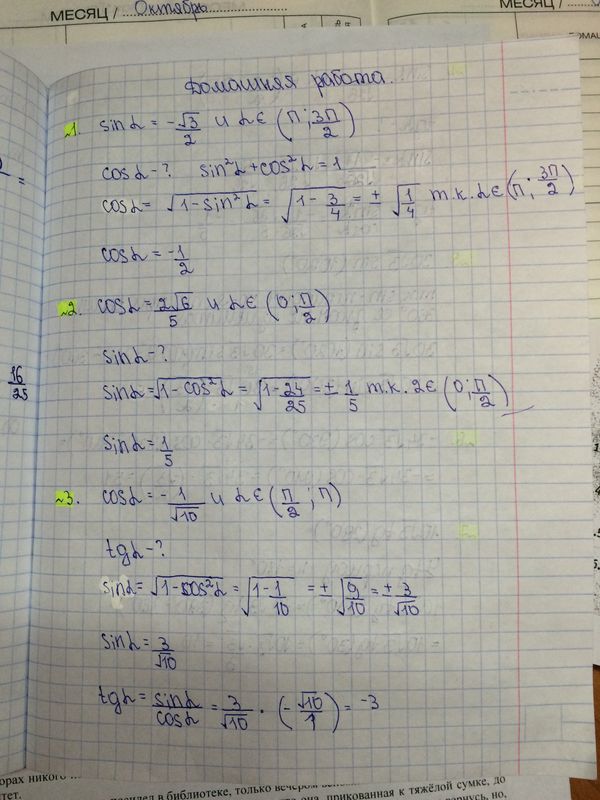 МЕСЯЦ / Октябрь
МЕСЯЦ /
Домашняя работа.
№1. sinα = -√3/2 и α∈(π; 3π/2)
cosα-? sin²α+cos²α=1
cosα= √1-sin²α = √1-3/4 = ± √1/4 т.к. α∈(π; 3π/2)
cosα= -1/2
№2. cosα=2√6/5 и α∈(0; π/2)
sinα-?
sinα=√1-cos²α = √1-24/25 = ± 1/5 т.к. 2∈(0; π/2)
sinα=1/5
16/25
№3. cosα= -1/√10 и α∈(π/2; π)
tgα-?
sinα= √1-cos²α = √1-1/10 = ± √9/10 = ± 3/√10
sinα= 3/√10
tgα= sinα/cosα = 3/√10 · (-√10/1) = -3
в библиотеке, только вечером
она, прикованная к тяжёлой сумке, до